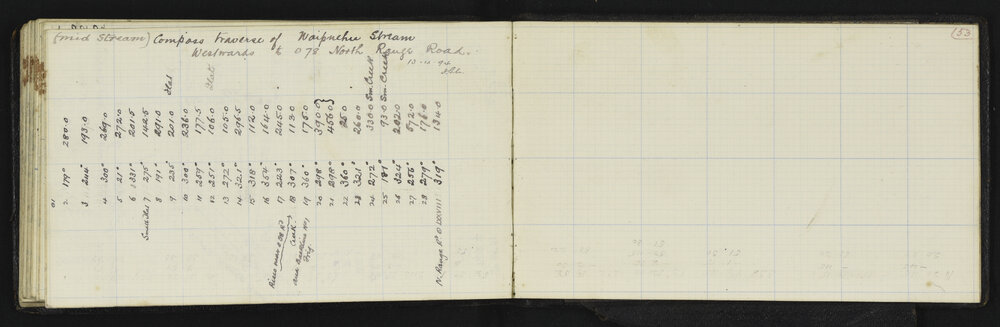 (mid Stream) Compass traverse of Waipuehu Stream
Westwards to 078 North Range Road.
10-11-94
153
01
2 179° 280.0
3 244° 193.0
4 300° 269.0
5 21° 272.0
6 331° 201.5
Small Flat 7 275° 142.5
8 191° 291.0
9 235° 201.0 Flat
10 300° 236.0
11 259° 177.5
12 251° 106.0 Flat
13 272° 105.0
14 321° 296.5
15 318° 112.0
16 354° 164.0
17 223° 245.0
Creek 18 307° 113.0
Trig 19 360° 175.0
20 298° 390.0
21 298° 456.0
22 360° 25.0
23 321° 260.0
24 272° 330.0 Sm. Creek
25 181° 93.0 Sm. Creek
26 324° 202.0
27 256° 592.0
28 279° 176.0
N. Range Rd 319° 134.0